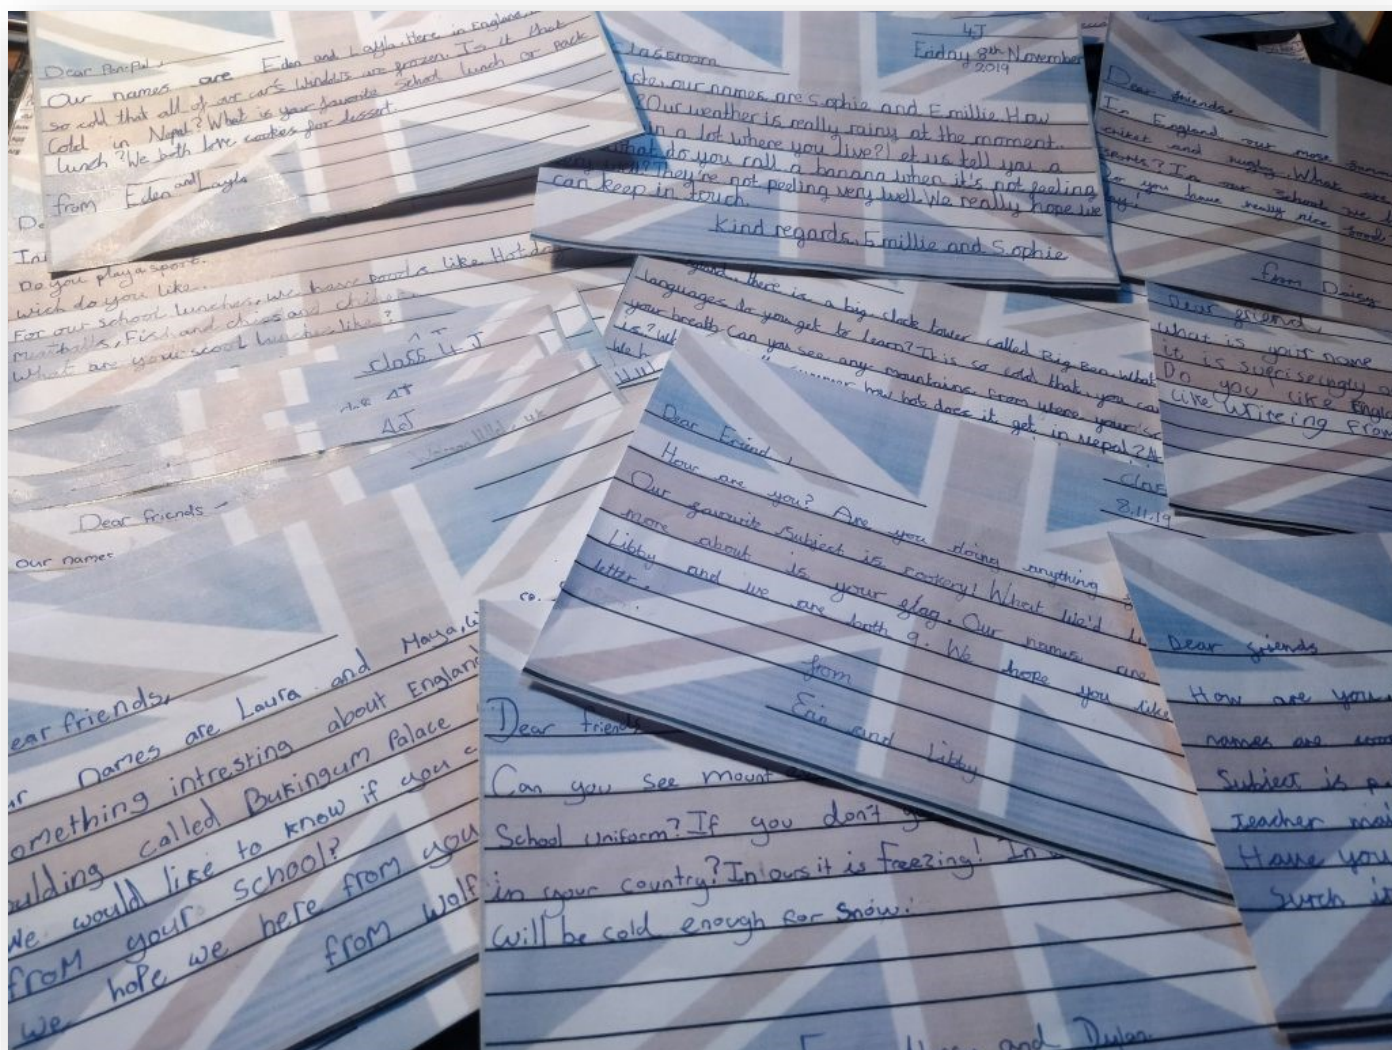 Dear Pen-Pal,
Our names are Eden and Layla. Here in England,
so cold that all of our car's windows are frozen. Is it that
cold in Nepal? What is your favorite School lunch or pack
lunch? We both love cookies for dessert.
from Eden and Layla
4J
Friday 8th November
2019
classroom
our names are Sophie and Emillie How
? Our weather is really rainy at the moment.
in a lot where you live? Let us tell you a
what do you call a banana when it's not feeling
They're not peeling very well. We really hope we
can keep in touch.
Kind regards, Emillie and Sophie
Dear friends,
In England our most
cricket and rugby. What
sports? In our school we
do you have really nice food
from Daisy
Do you play a sport.
wich do you like.
For our school lunches, we have foods like Hot dogs
meatballs, Fish and chips and chicken.
What are your scool lunches like?
class 4J
4J
4J
there is a big clock tower called Big Ben. What
languages do you get to learn? It is so cold that you can
your breath Can you see any mountains from where your
is? We
summer how hot does it get in Nepal?
Dear friend,
what is your name
it is suprisingly
Do you like
like writing from
Dear friends
our names
Class
8.11.19
Dear Friend,
How are you? Are you doing anything
Our favourite subject is cookery! What we'd
more about is your flag. Our names are
Libby and we are both 9. We hope you like
letter.
from
Erin and Libby
ear friends,
names are Laura and Maya,
omething intresting about England
uilding called Bukingum Palace
we would like to know if you
from your school?
we hope we here from you
from Wolf
Dear friends
Can you see mount
School uniform? If you don't
in your country? In ours it is freezing! In
will be cold enough for snow.
and Dylan.
Dear friends
How are you
names are
Subject is
teacher
Have you
Surch